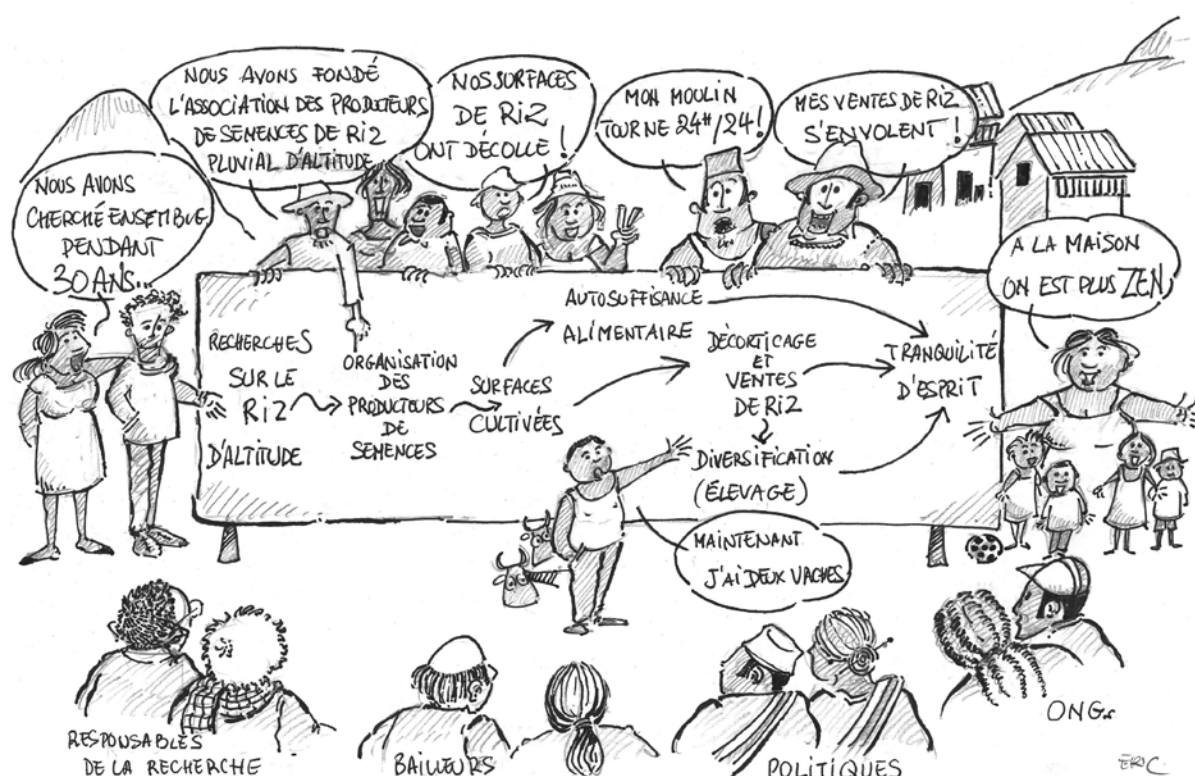 NOUS AVONS FONDÉ
L'ASSOCIATION DES PRODUCTEURS
DE SEMENCES DE RIZ
PLUVIAL D'ALTITUDE
NOS SURFACES
DE RIZ
ONT DÉCOLLÉ !
MON MOULIN
TOURNE 24H/24 !
MES VENTES DE RIZ
S'ENVOLENT !
NOUS AVONS
CHERCHÉ ENSEMBLE
PENDANT
30 ANS...
A LA MAISON
ON EST PLUS ZEN
RECHERCHES
SUR LE
RIZ
D'ALTITUDE
ORGANISATION
DES
PRODUCTEURS
DE
SEMENCES
SURFACES
CULTIVÉES
AUTOSUFFISANCE
ALIMENTAIRE
DÉCORTICAGE
ET
VENTES
DE RIZ
DIVERSIFICATION
(ÉLEVAGE)
TRANQUILITÉ
D'ESPRIT
MAINTENANT
J'AI DEUX VACHES
RESPONSABLES
DE LA RECHERCHE
BAILLEURS
POLITIQUES
ONGs
ERIC